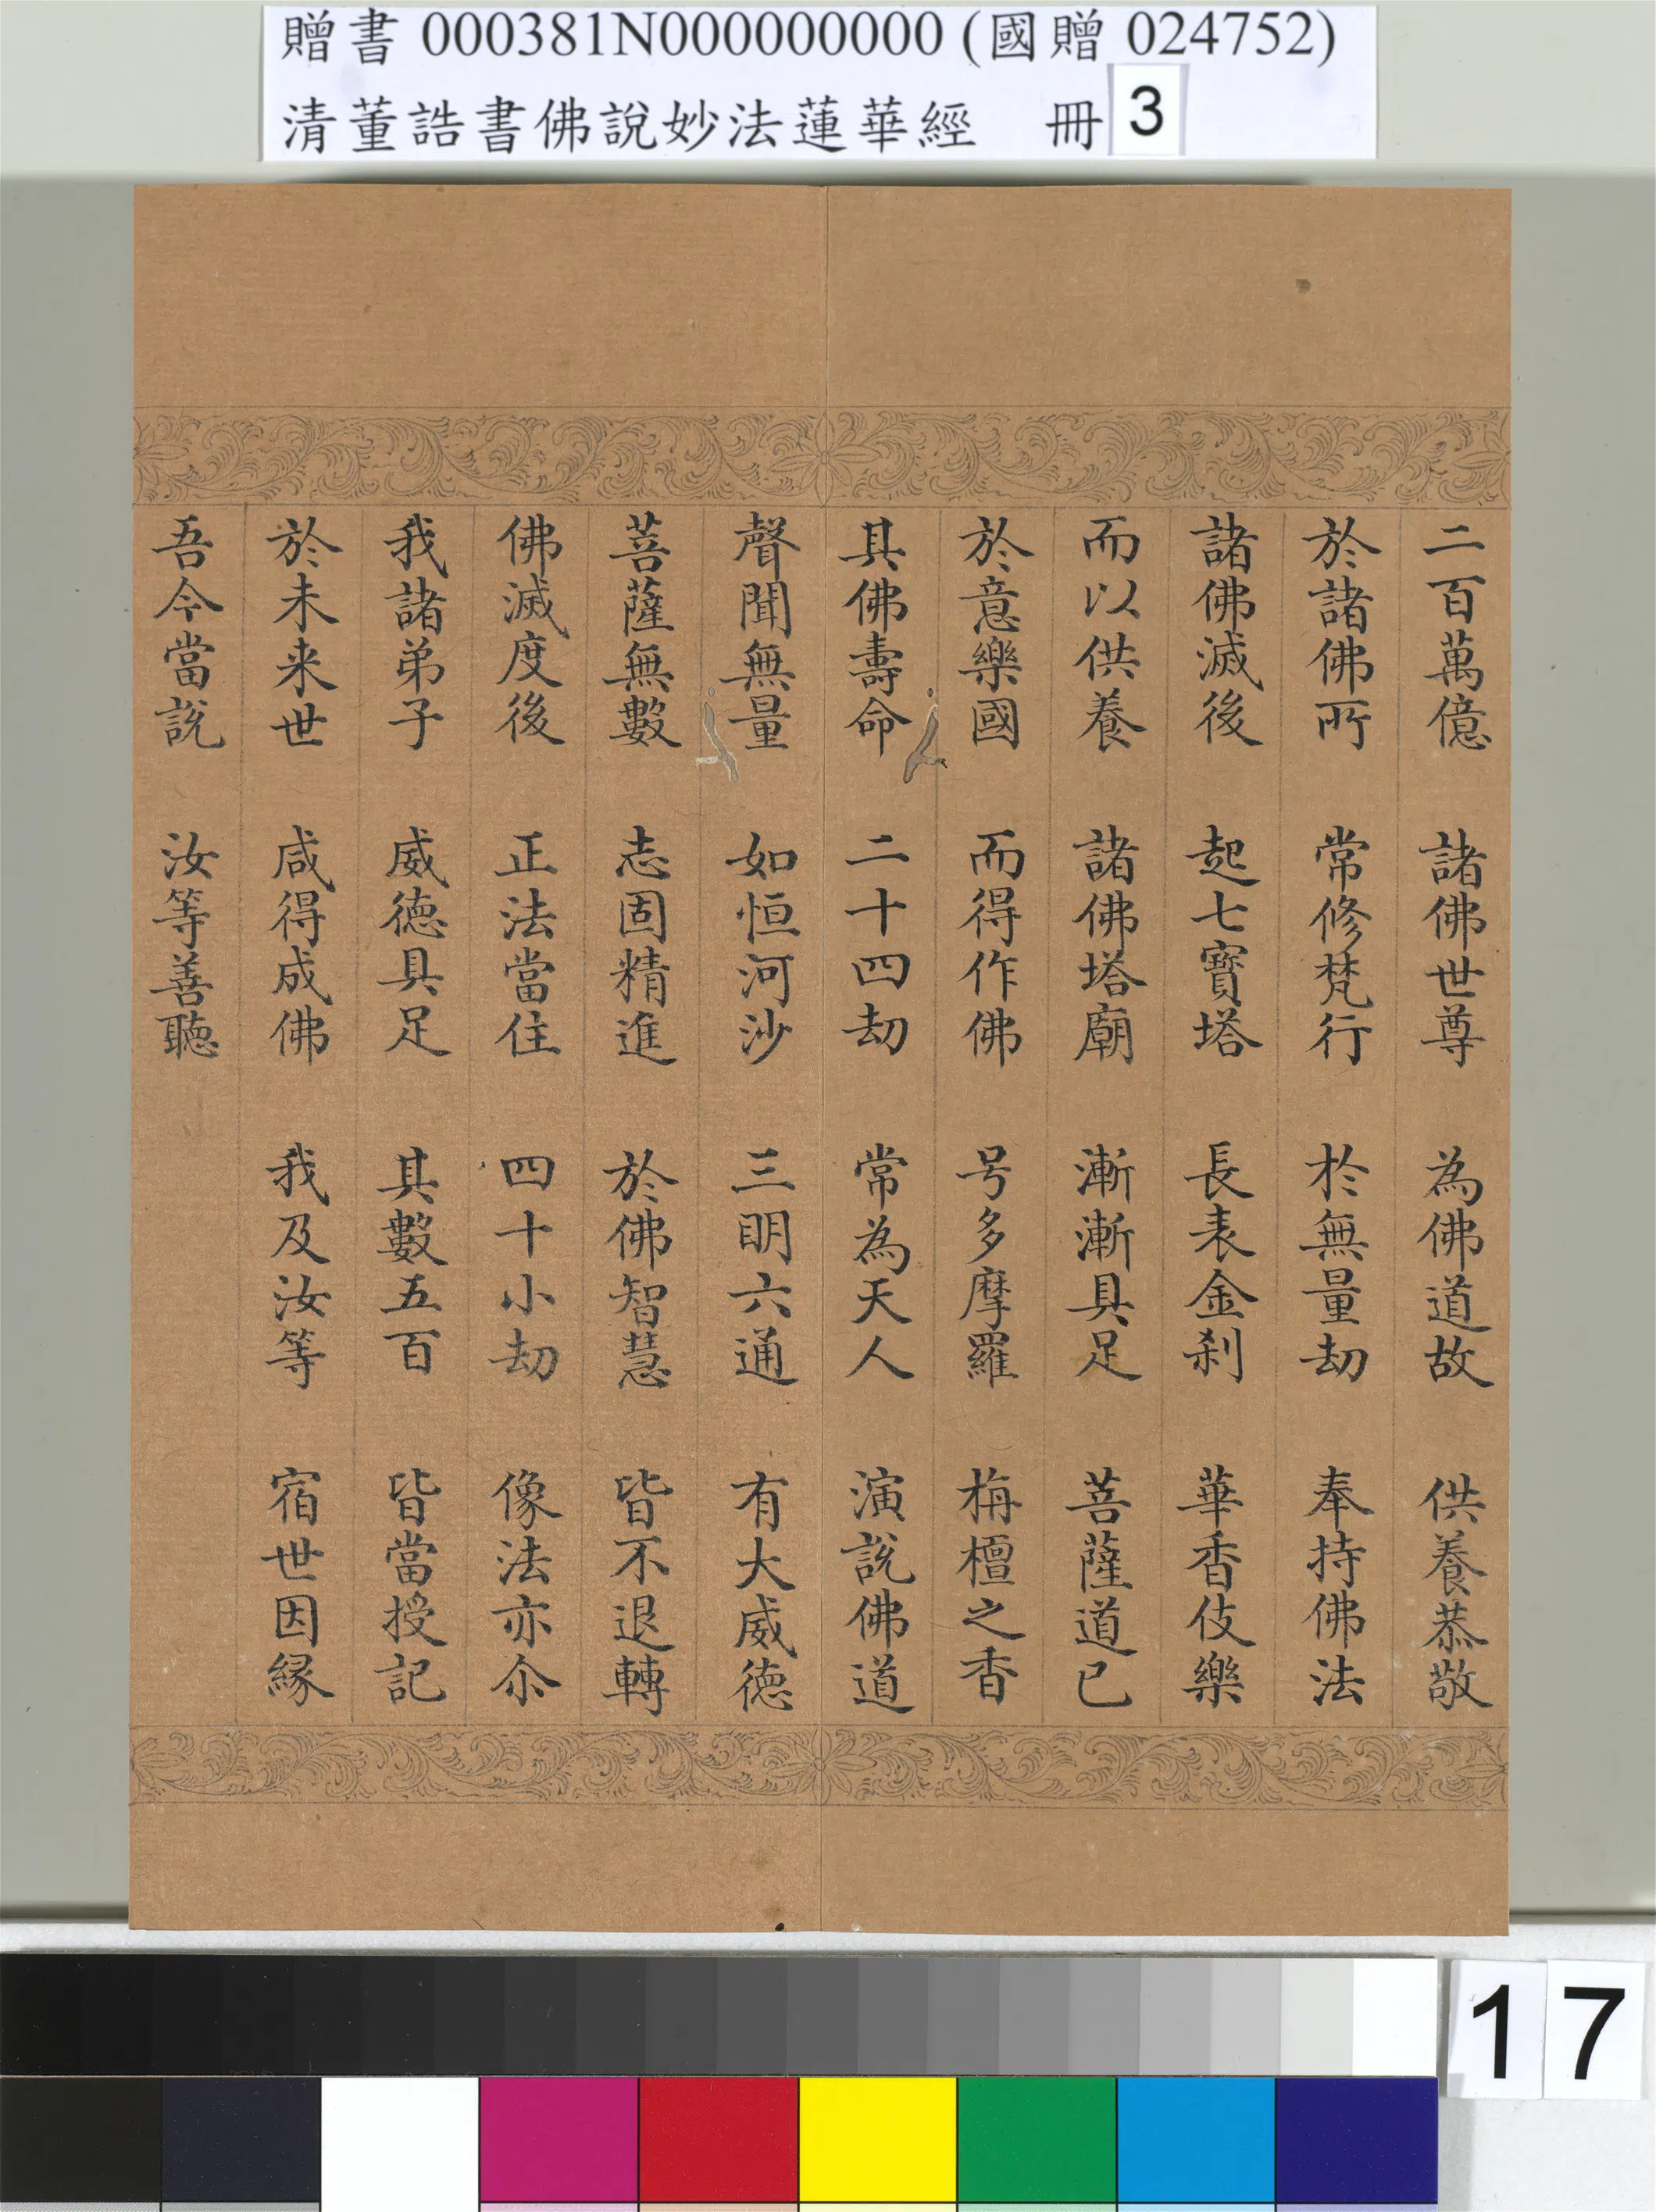 贈書 000381N000000000 (國贈 024752)
清董誥書佛說妙法蓮華經　冊 3
二百萬億　諸佛世尊　為佛道故　供養恭敬
於諸佛所　常修梵行　於無量劫　奉持佛法
諸佛滅後　起七寶塔　長表金剎　華香伎樂
而以供養　諸佛塔廟　漸漸具足　菩薩道已
於意樂國　而得作佛　号多摩羅　栴檀之香
其佛壽命　二十四劫　常為天人　演說佛道
聲聞無量　如恒河沙　三明六通　有大威德
菩薩無數　志固精進　於佛智慧　皆不退轉
佛滅度後　正法當住　四十小劫　像法亦尒
我諸弟子　威德具足　其數五百　皆當授記
於未来世　咸得成佛　我及汝等　宿世因緣
吾今當說　汝等善聽
17